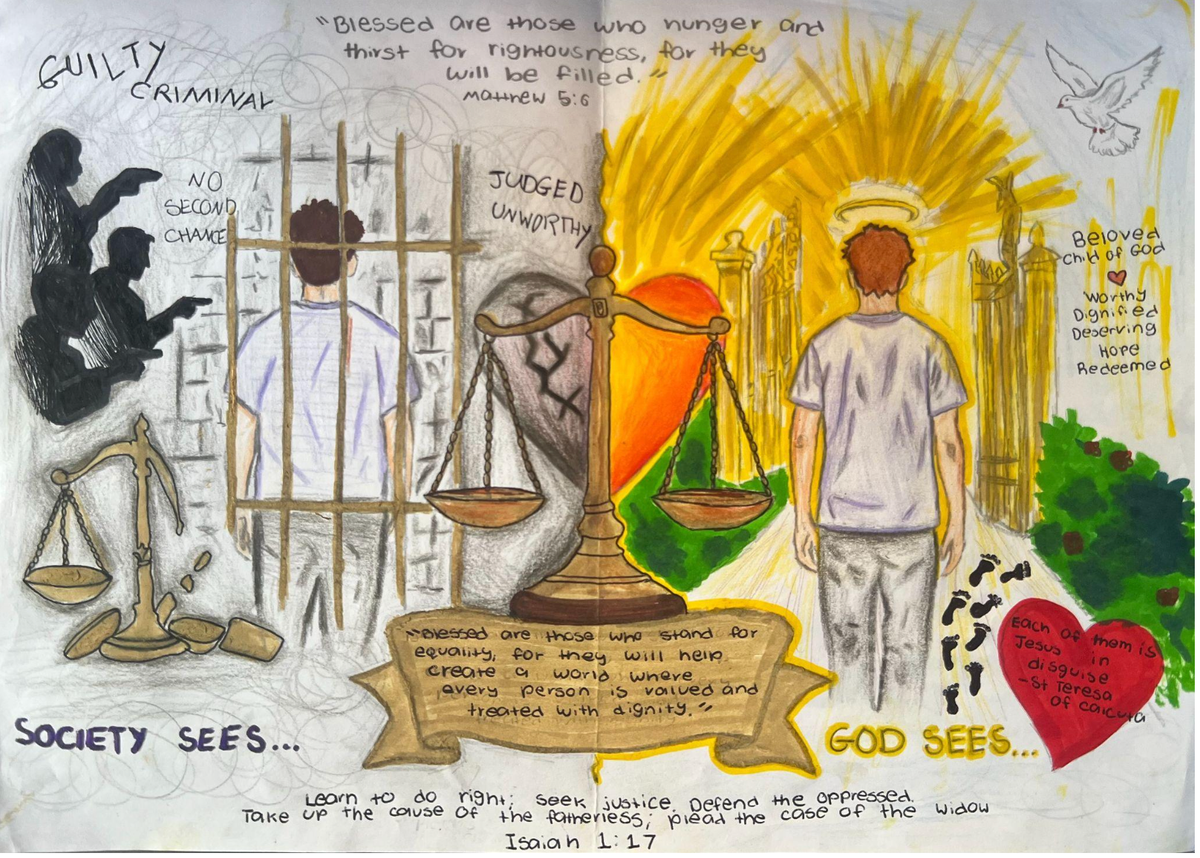 "Blessed are those who hunger and
thirst for rightousness, for they
will be filled."
Matthew 5:6
GUILTY
CRIMINAL
NO
SECOND
CHANCE
JUDGED
UNWORTHY
Beloved
Child of God
Worthy
Dignified
Deserving
Hope
Redeemed
"Blessed are those who stand for
equality, for they will help
create a world where
every person is valued and
treated with dignity."
Each of them is
Jesus in
disguise
-St Teresa
of calcuta
SOCIETY SEES...
GOD SEES...
Learn to do right; seek justice. Defend the oppressed.
Take up the cause of the fatherless; plead the case of the widow
Isaiah 1:17